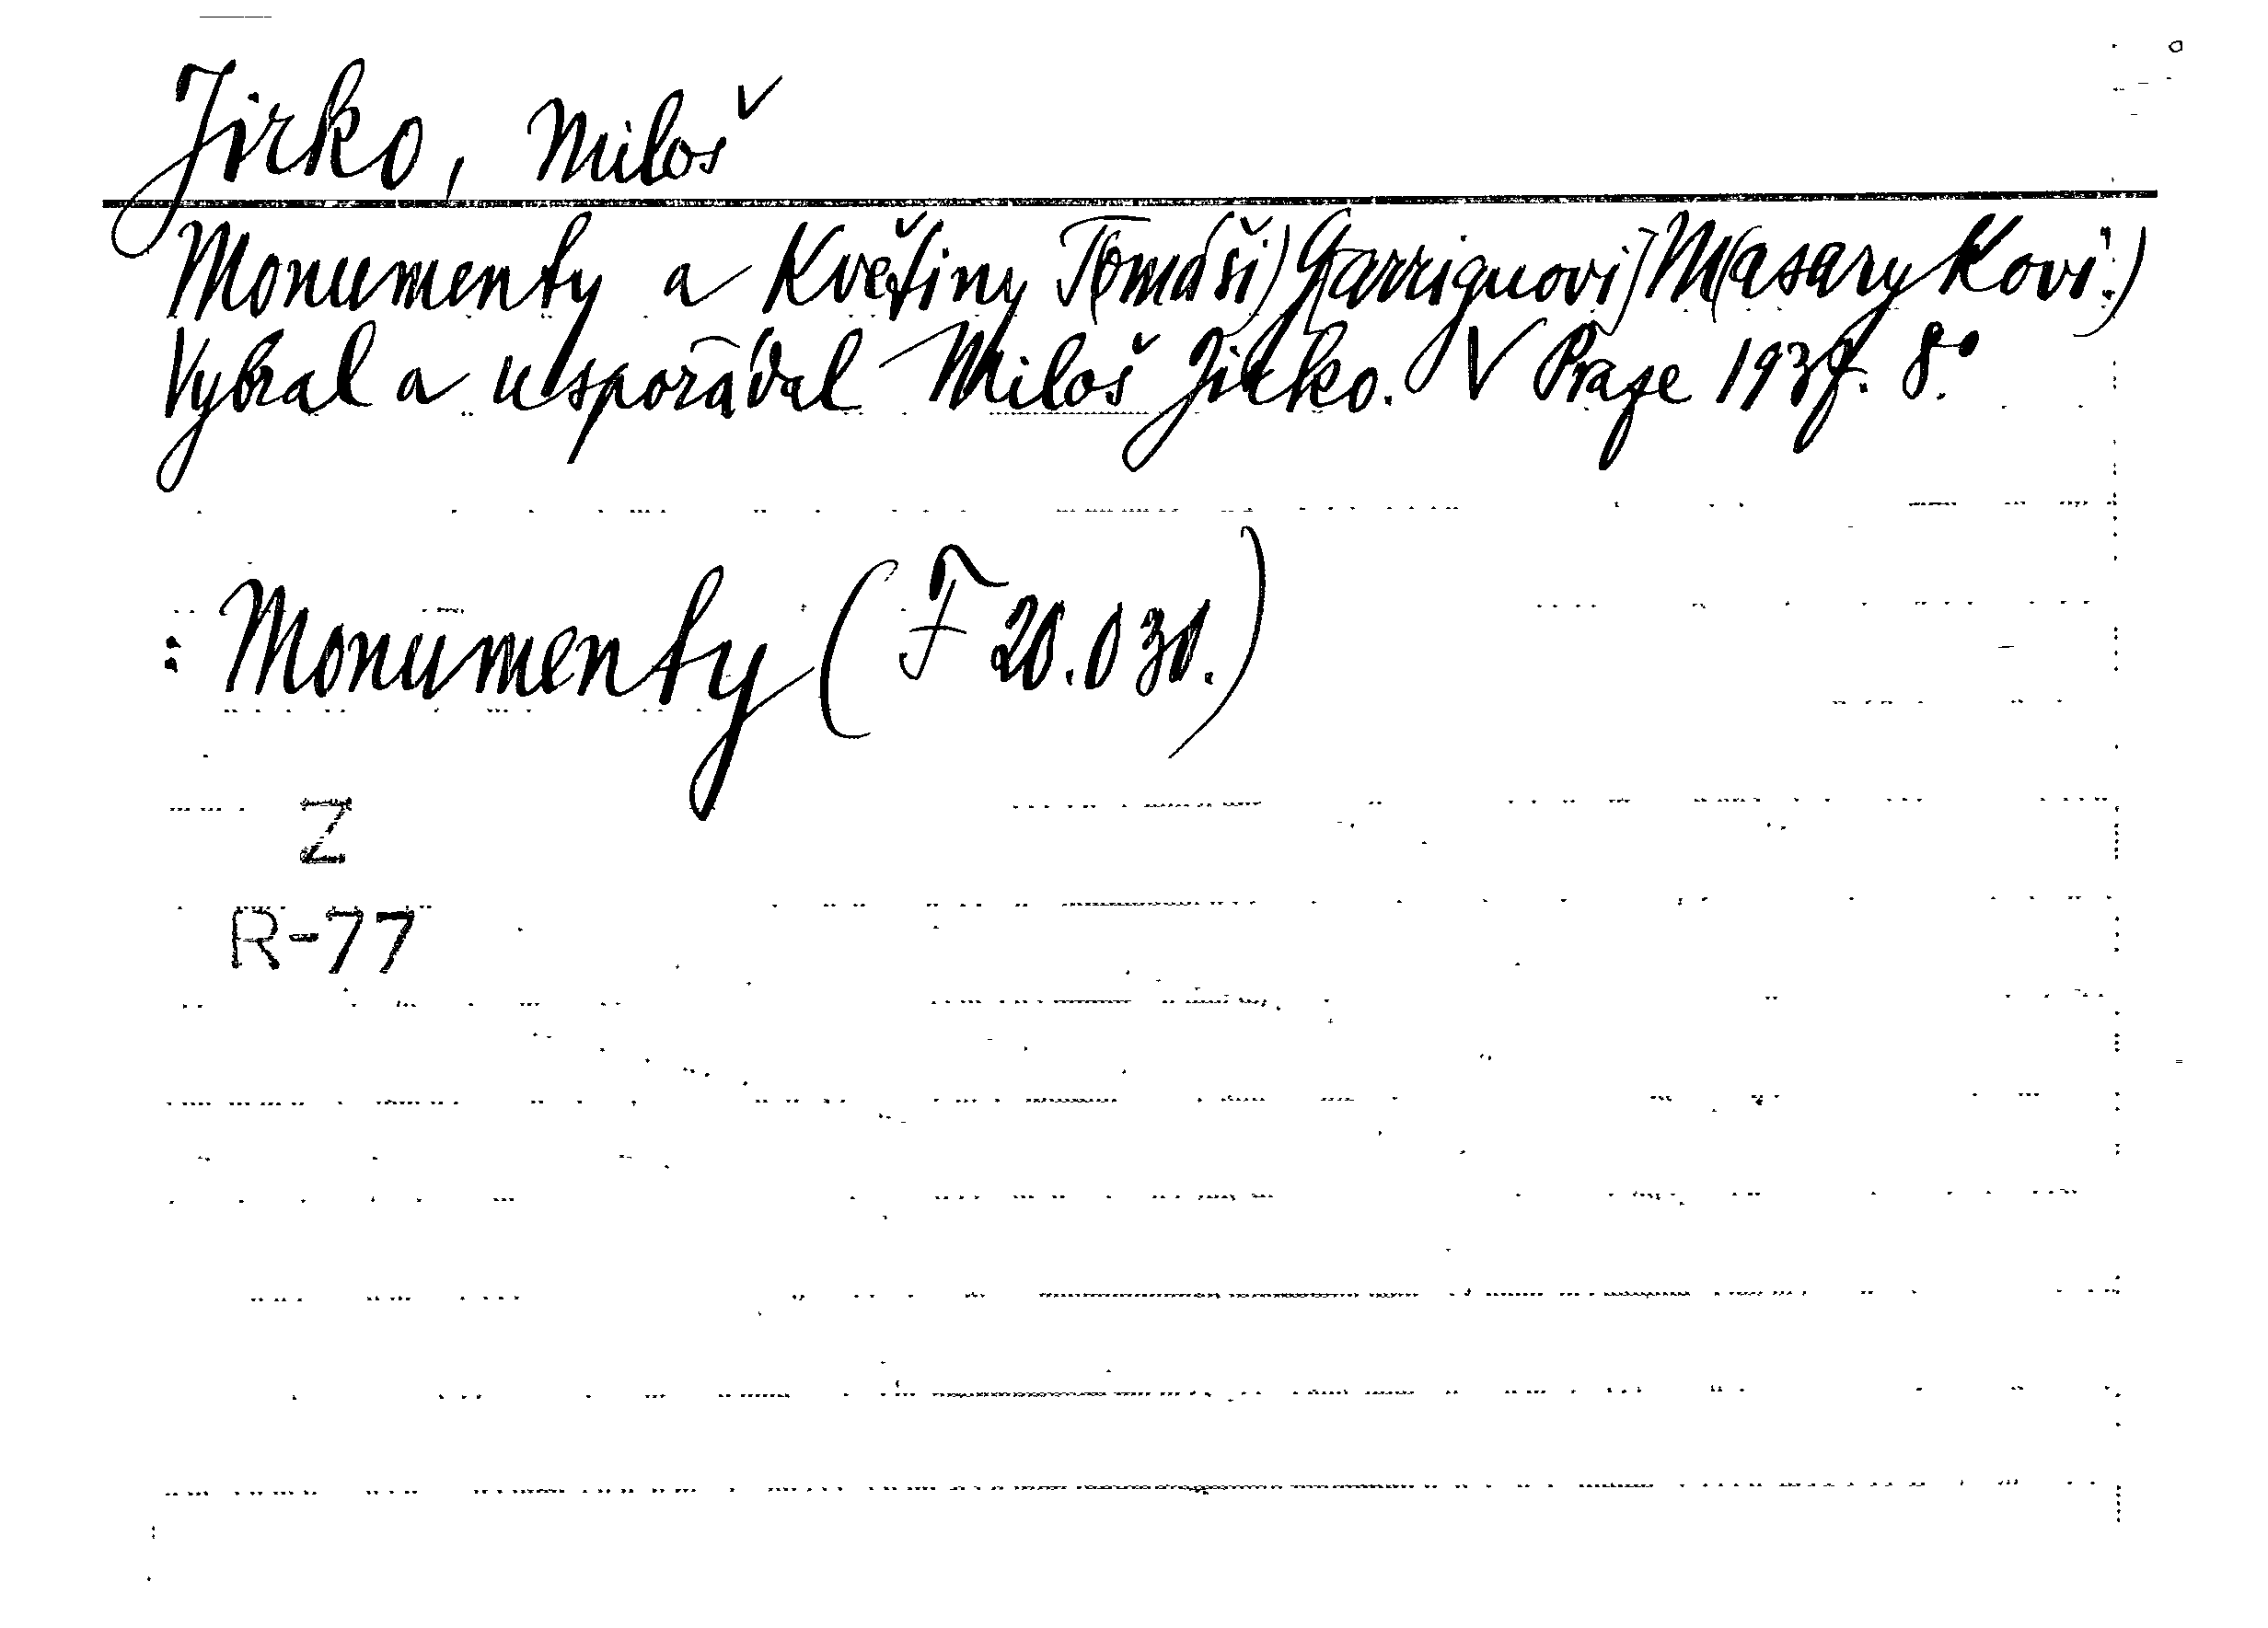 Jirko, Miloš
Monumenty a Květiny T(omáši) G(arriguovi) M(asarykovi.)
Vybral a uspořádal Miloš Jirko. V Praze 1937. 8.°
: Monumenty (F 20.030.)
Z
R-77